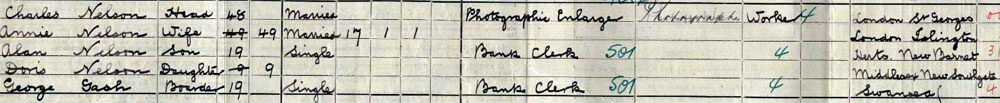 Charles Nelson Head 48 Married Photographic Enlarger Photographic Worker 4 London St Georges 0
Annie Nelson Wife 49 49 Married 17 1 1 London Islington
Alan Nelson Son 19 Single Bank Clerk 501 4 Herts. New Barnet 3
Doris Nelson Daughter 9 9 Middlesex New Southgate
George Gash Boarder 19 Single Bank Clerk 501 4 Swansea 4